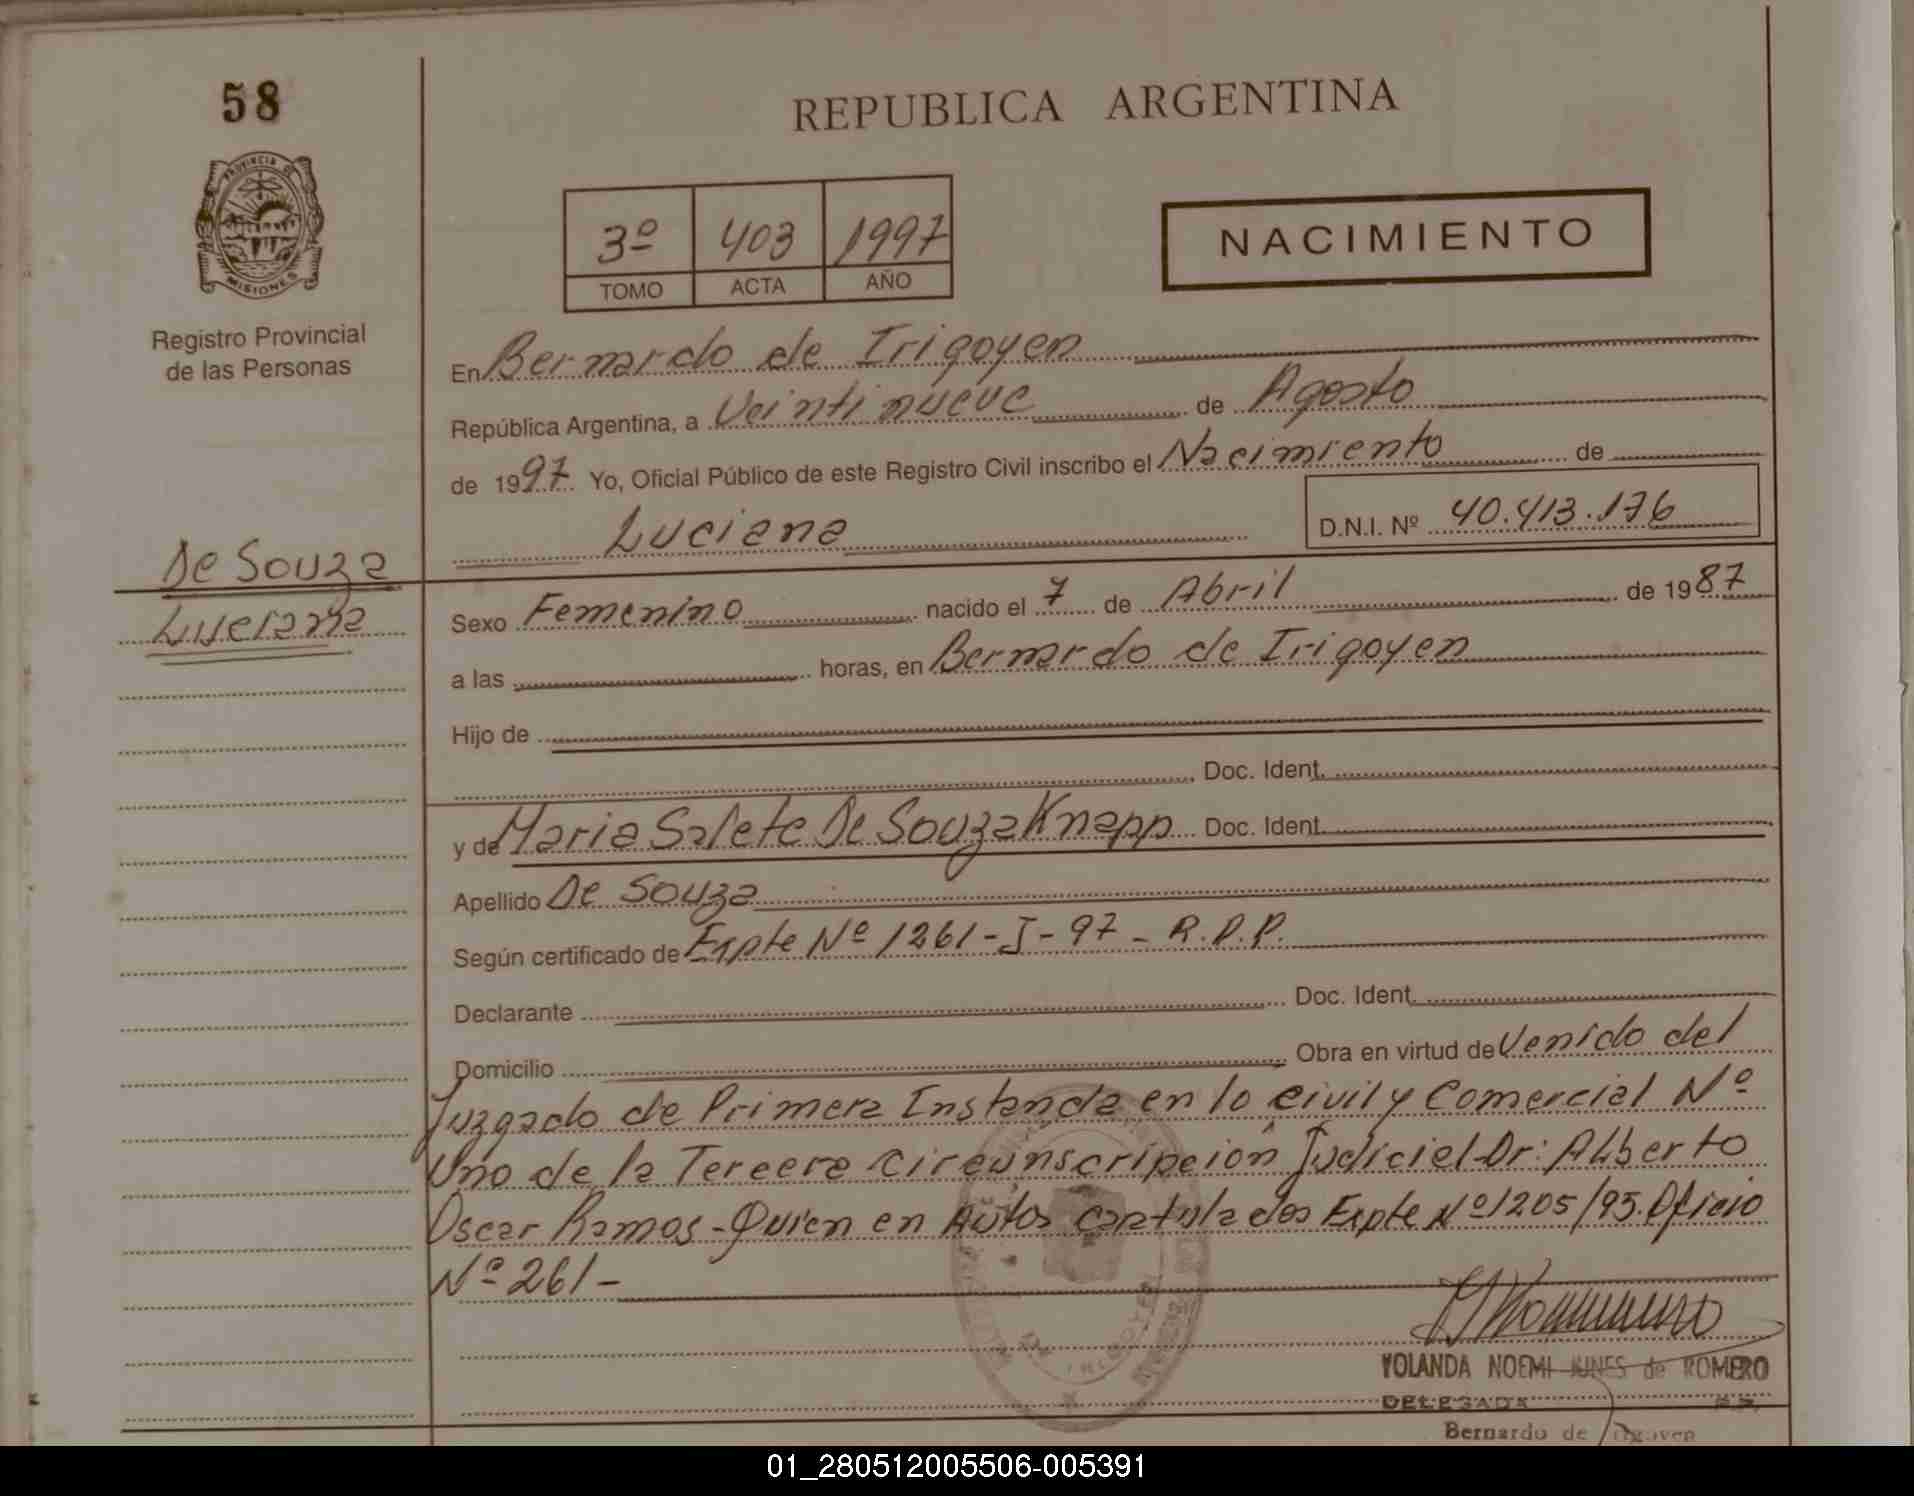 58
PROVINCIA DE
MISIONES
Registro Provincial
de las Personas
De Souza
Luciana
REPUBLICA ARGENTINA
3º 403 1997
TOMO ACTA AÑO
NACIMIENTO
En Bernardo de Irigoyen
República Argentina, a Veintinueve de Agosto
de 1997 Yo, Oficial Público de este Registro Civil inscribo el Nacimiento de
Luciana D.N.I. Nº 40.413.176
Sexo Femenino nacido el 7 de Abril de 1987
a las horas, en Bernardo de Irigoyen
Hijo de
Doc. Ident.
y de Maria Salete De Souza Knapp Doc. Ident.
Apellido De Souza
Según certificado de Expte Nº 1261-J-97- R.P.P.
Declarante Doc. Ident.
Domicilio Obra en virtud de Venido del
Juzgado de Primera Instancia en lo Civil y Comercial Nº
Uno de la Tercera Circunscripción Judicial-Dr: Alberto
Oscar Ramos-Quien en Autos caratulados Expte Nº 1205/95. Oficio
Nº 261-
YOLANDA NOEMI JUNES de ROMERO
DELEGADA
Bernardo de Irigoyen
01_280512005506-005391